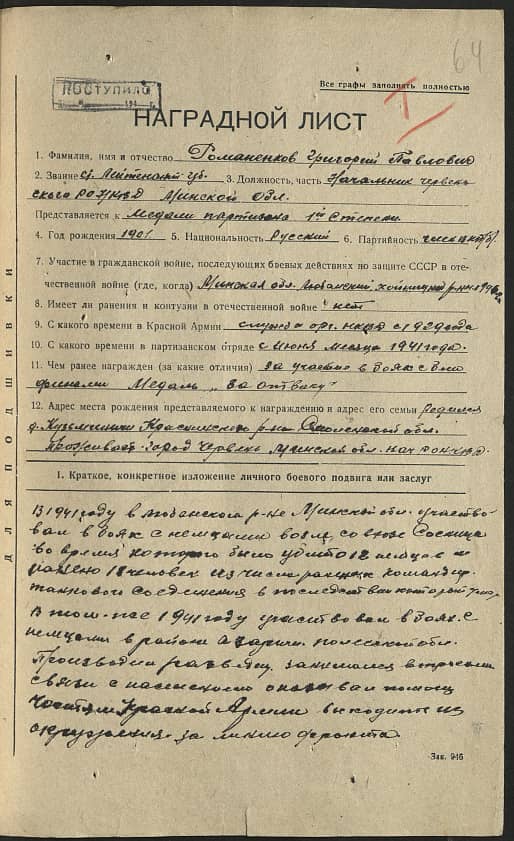 64
ПОСТУПИЛО
194 г.
Все графы заполнять полностью
НАГРАДНОЙ ЛИСТ
1. Фамилия, имя и отчество Романенков Григорий Павлович
2. Звание Ст. Лейтенант гб. 3. Должность, часть Начальник червень
ского РОНКВД Минской Обл.
Представляется к Медали партизана 1ой степени
4. Год рождения 1901 5. Национальность Русский 6. Партийность член вкп(б)
7. Участие в гражданской войне, последующих боевых действиях по защите СССР в оте-
чественной войне (где, когда) Минская обл. Любанский,
8. Имеет ли ранения и контузии в отечественной войне нет
9. С какого времени в Красной Армии служба орг. нквд с 1929 года
10. С какого времени в партизанском отряде с июня месяца 1941 года.
11. Чем ранее награжден (за какие отличия) за участие в боях с бело
финами Медаль "За отвагу"
12. Адрес места рождения представляемого к награждению и адрес его семьи родился
д. Кузьмичи р-на Смоленской обл.
Проживает город Червень Минской обл. нач РОНКВД.
1. Краткое, конкретное изложение личного боевого подвига или заслуг
В 1941 году в Любанском р-не Минской обл. участво
вал в боях с немцами возле совхоза Сосны
во время которого было убито 12 немцев и
ранено 18 человек из числа раненых командир
танкового соединения в последствии который умер
В том-же 1941 году участвовал в боях с
немцами в районе Озаричи полесской обл.
Производил разведку, занимался
связи с населением оказывал помощь
частям Красной Армии выходить из
окружения за линию фронта
Зак. 946
для подшивки